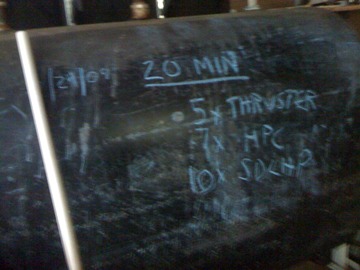 20 MIN
5x THRUSTER
7x HPC
10x SDCHP